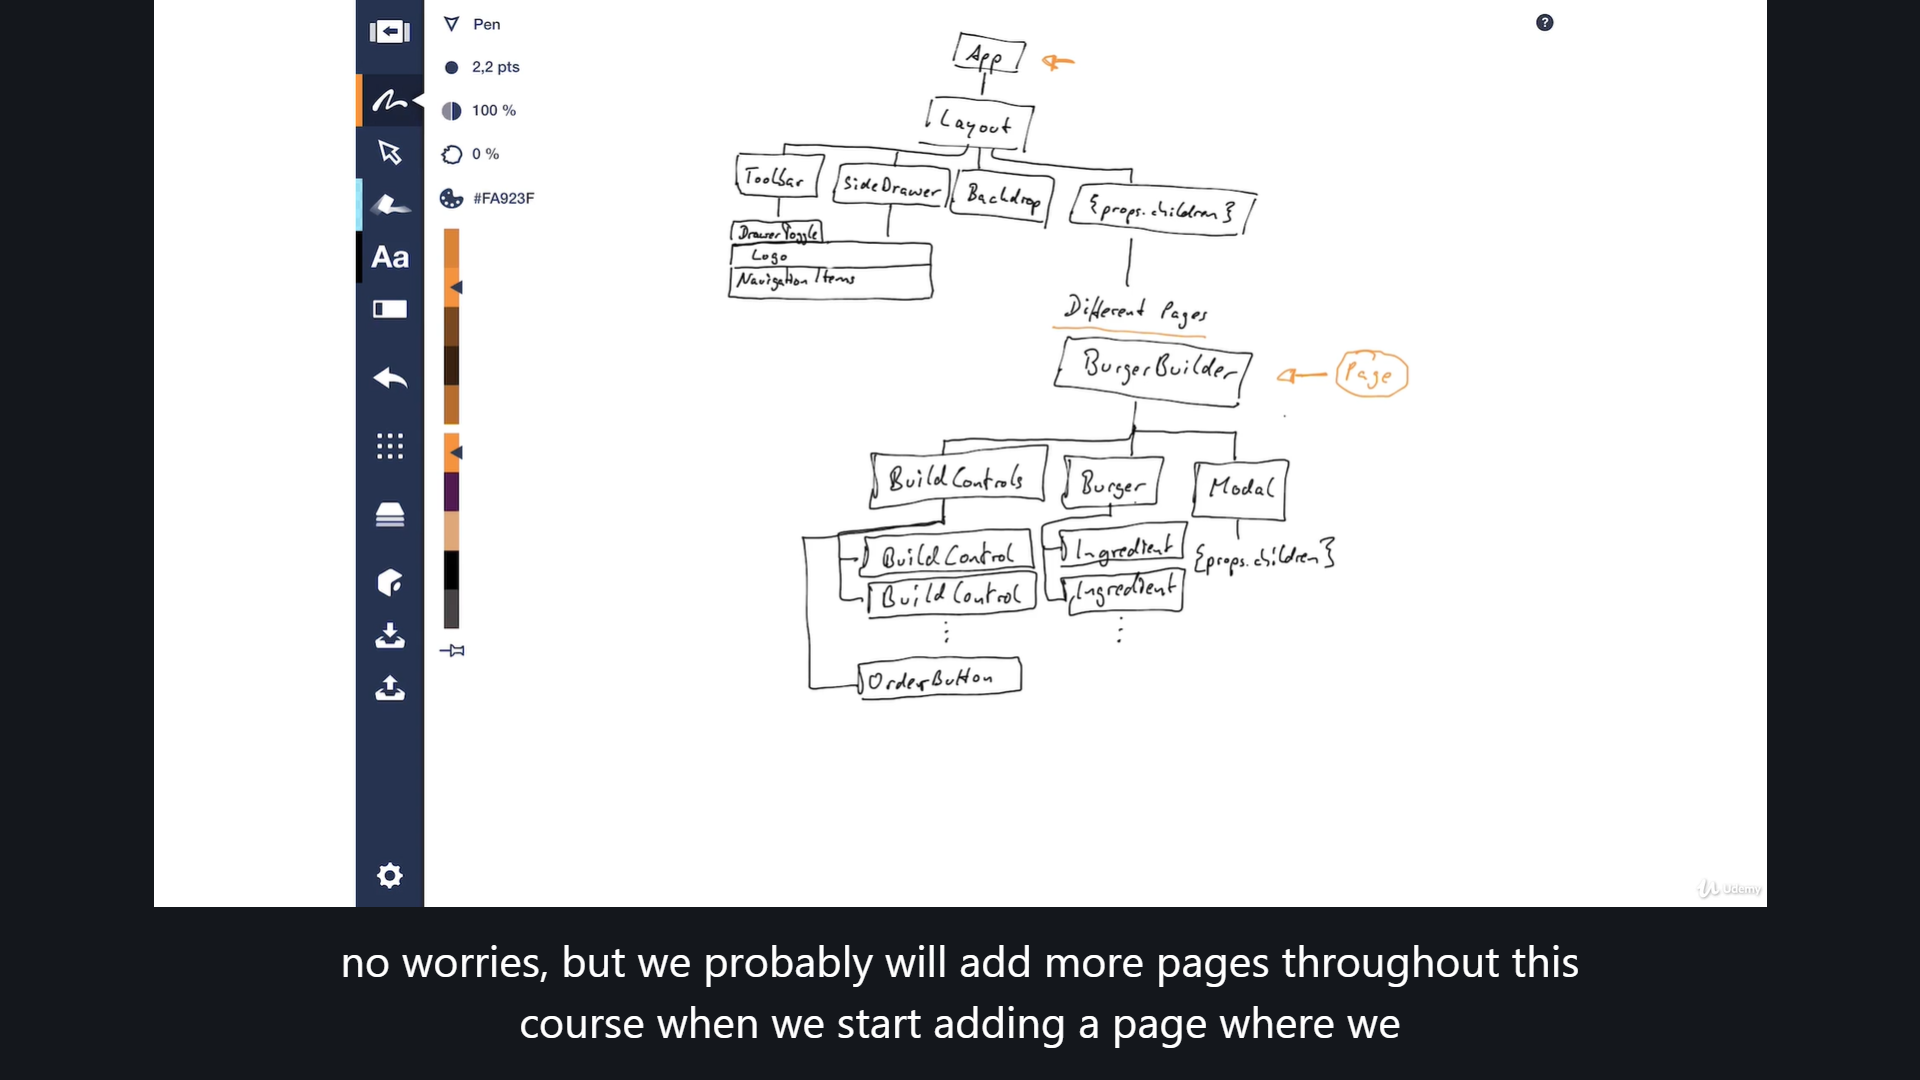 Pen
2,2 pts
100 %
0 %
#FA923F
Aa
?
App
Layout
Toolbar
SideDrawer
Backdrop
{props.children}
DrawerToggle
Logo
Navigation Items
Different Pages
BurgerBuilder
Page
BuildControls
Burger
Modal
BuildControl
Ingredient
{props.children}
BuildControl
Ingredient
OrderButton
Udemy
no worries, but we probably will add more pages throughout this
course when we start adding a page where we